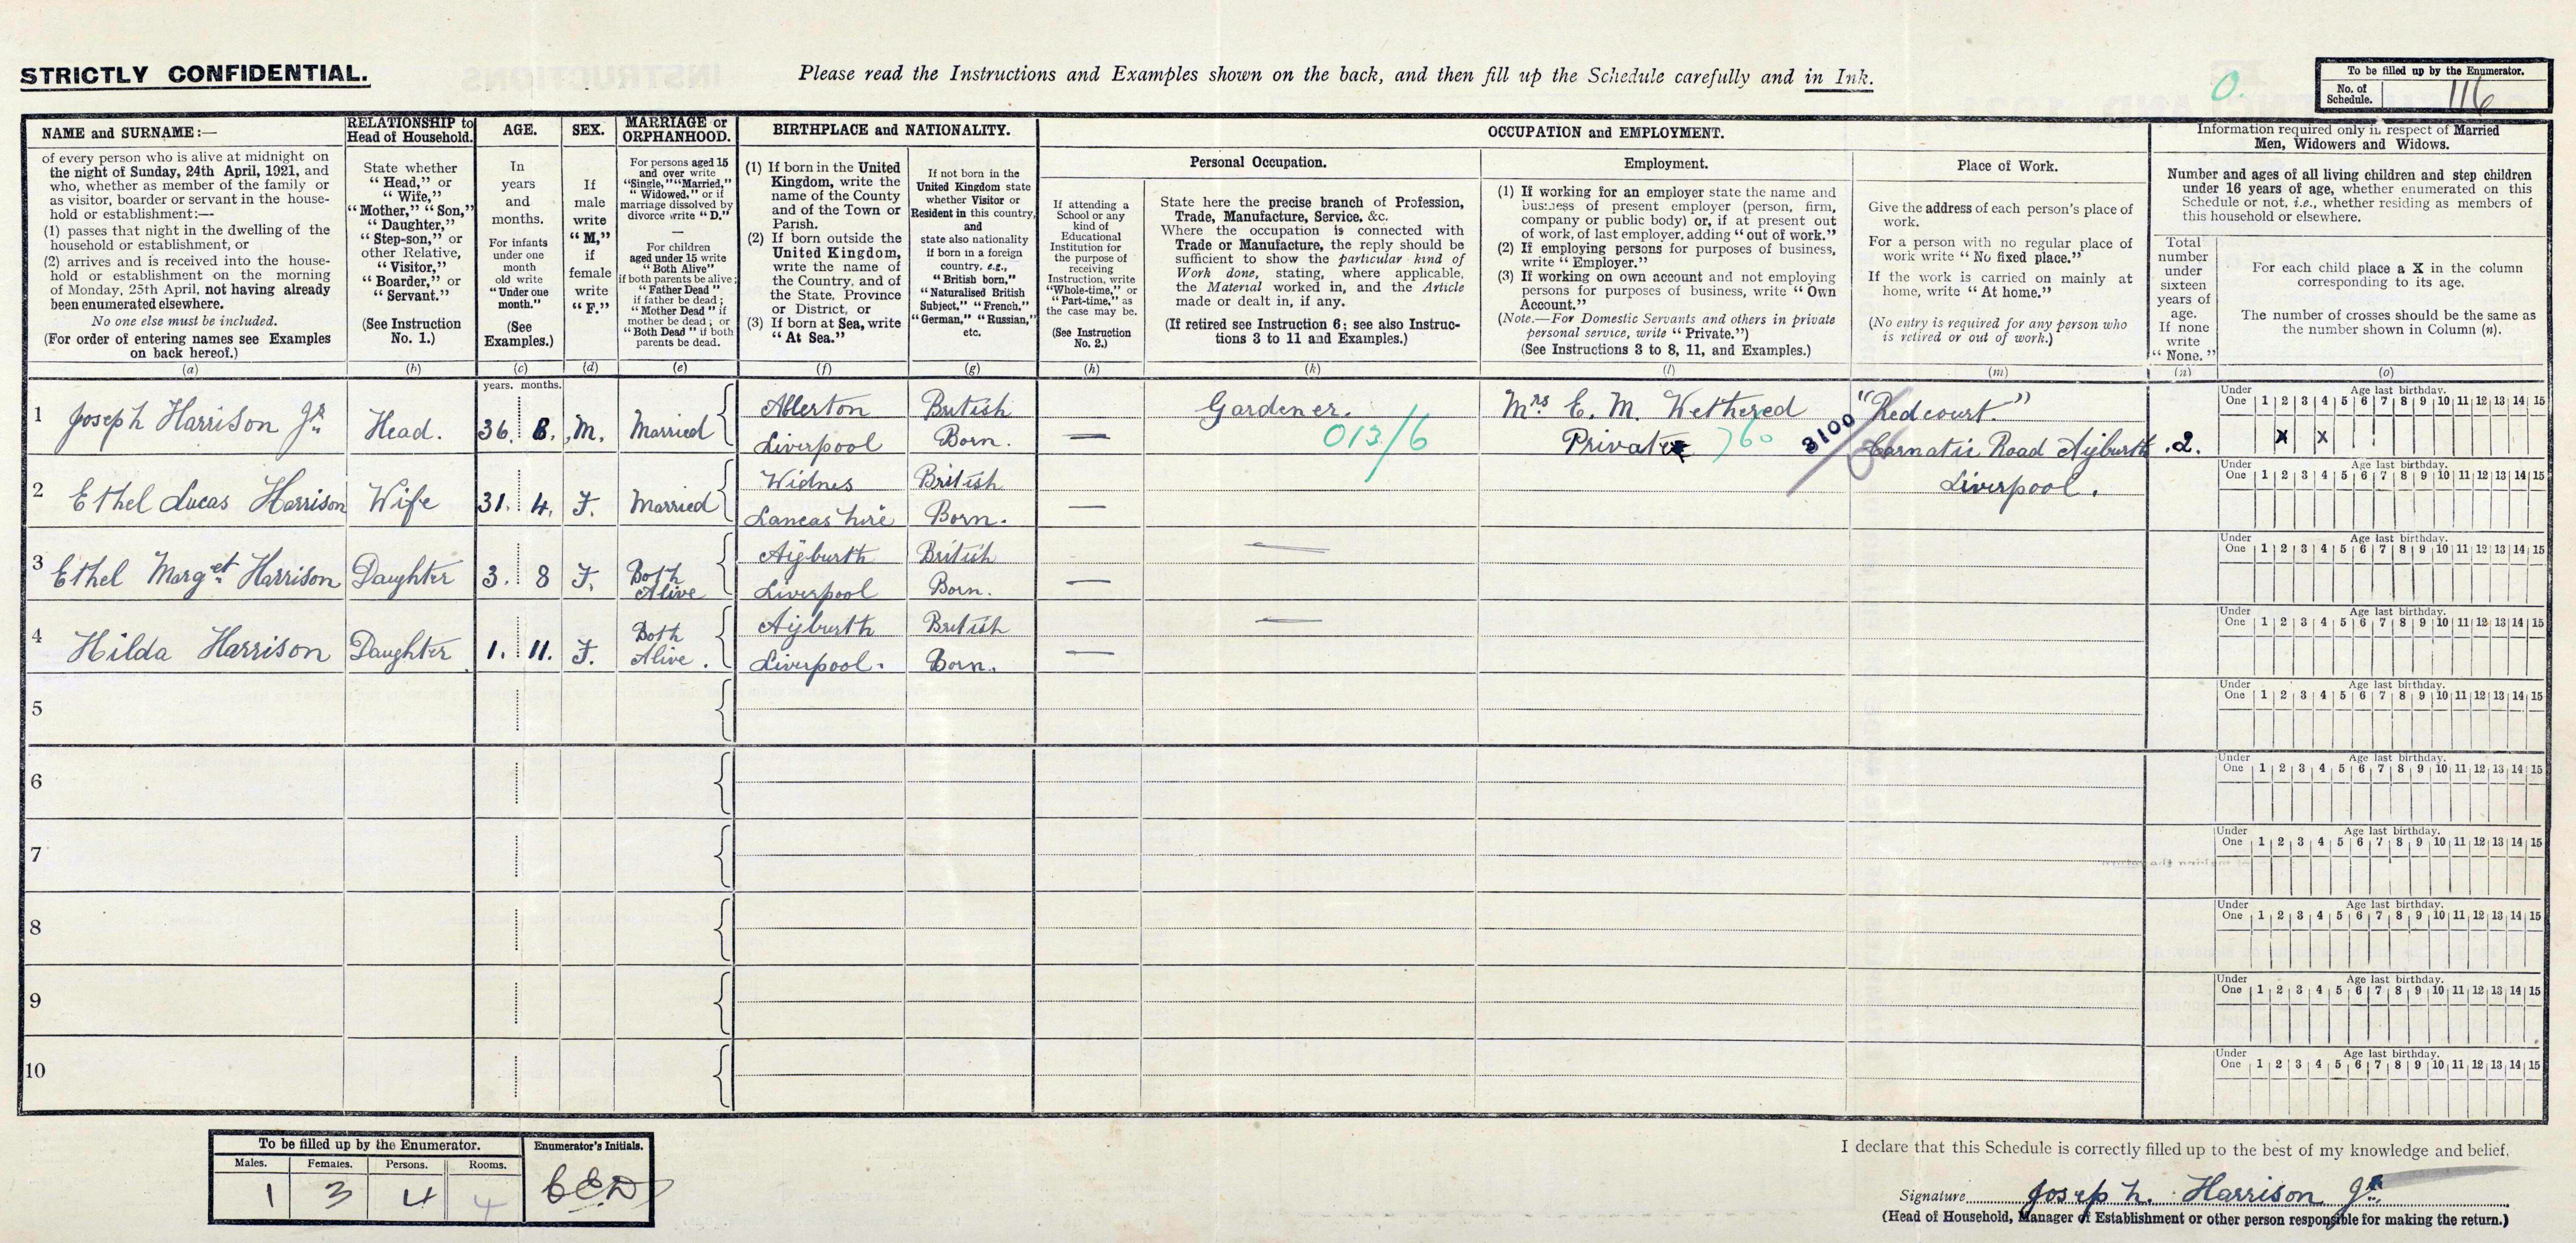 STRICTLY CONFIDENTIAL.
Please read the Instructions and Examples shown on the back, and then fill up the Schedule carefully and in Ink.
0.
To be filled up by the Enumerator.
No. of
Schedule.
116
NAME and SURNAME:—
of every person who is alive at midnight on
the night of Sunday, 24th April, 1921, and
who, whether as member of the family or
as visitor, boarder or servant in the house-
hold or establishment:—
(1) passes that night in the dwelling of the
household or establishment, or
(2) arrives and is received into the house-
hold or establishment on the morning
of Monday, 25th April, not having already
been enumerated elsewhere.
No one else must be included.
(For order of entering names see Examples
on back hereof.)
(a)
RELATIONSHIP to
Head of Household.
State whether
"Head," or
"Wife,"
"Mother," "Son,"
"Daughter,"
"Step-son," or
other Relative,
"Visitor,"
"Boarder," or
"Servant."
(See Instruction
No. 1.)
(b)
AGE.
In
years
and
months.
For infants
under one
month
old write
"Under one
month."
(See
Examples.)
(c)
SEX.
If
male
write
"M,"
if
female
write
"F."
(d)
MARRIAGE or
ORPHANHOOD.
For persons aged 15
and over write
"Single," "Married,"
"Widowed," or if
marriage dissolved by
divorce write "D."
—
For children
aged under 15 write
"Both Alive"
if both parents be alive;
"Father Dead"
if father be dead;
"Mother Dead" if
mother be dead; or
"Both Dead" if both
parents be dead.
(e)
BIRTHPLACE and NATIONALITY.
(1) If born in the United
Kingdom, write the
name of the County
and of the Town or
Parish.
(2) If born outside the
United Kingdom,
write the name of
the Country, and of
the State, Province
or District, or
(3) If born at Sea, write
"At Sea."
(f)
If not born in the
United Kingdom state
whether Visitor or
Resident in this country,
and
state also nationality
if born in a foreign
country, e.g.,
"British born,"
"Naturalised British
Subject," "French,"
"German," "Russian,"
etc.
(g)
OCCUPATION and EMPLOYMENT.
Personal Occupation.
If attending a
School or any
kind of
Educational
Institution for
the purpose of
receiving
Instruction, write
"Whole-time," or
"Part-time," as
the case may be.
(See Instruction
No. 2.)
(h)
State here the precise branch of Profession,
Trade, Manufacture, Service, &c.
Where the occupation is connected with
Trade or Manufacture, the reply should be
sufficient to show the particular kind of
Work done, stating, where applicable,
the Material worked in, and the Article
made or dealt in, if any.
(If retired see Instruction 6: see also Instruc-
tions 3 to 11 and Examples.)
(k)
Employment.
(1) If working for an employer state the name and
business of present employer (person, firm,
company or public body) or, if at present out
of work, of last employer, adding "out of work."
(2) If employing persons for purposes of business,
write "Employer."
(3) If working on own account and not employing
persons for purposes of business, write "Own
Account."
(Note.—For Domestic Servants and others in private
personal service, write "Private.")
(See Instructions 3 to 8, 11, and Examples.)
(l)
Place of Work.
Give the address of each person's place of
work.
For a person with no regular place of
work write "No fixed place."
If the work is carried on mainly at
home, write "At home."
(No entry is required for any person who
is retired or out of work.)
(m)
Information required only in respect of Married
Men, Widowers and Widows.
Number and ages of all living children and step children
under 16 years of age, whether enumerated on this
Schedule or not, i.e., whether residing as members of
this household or elsewhere.
Total
number
under
sixteen
years of
age.
If none
write
"None."
(n)
For each child place a X in the column
corresponding to its age.
The number of crosses should be the same as
the number shown in Column (n).
(o)
years. months.
1 Joseph Harrison Jr. Head. 36. 8. M. Married Allerton Liverpool British Born. — Gardener. 013/6 Mrs E. M. Wethered Private 760 3100 "Redcourt." Carnatic Road Aigburth Liverpool. 2.
Under One Age last birthday. 1 2 3 4 5 6 7 8 9 10 11 12 13 14 15
X X
2 Ethel Lucas Harrison Wife 31. 4. F. Married Widnes Lancashire British Born. —
Under One Age last birthday. 1 2 3 4 5 6 7 8 9 10 11 12 13 14 15
3 Ethel Marget Harrison Daughter 3. 8 F. Both Alive Aigburth Liverpool British Born. — —
Under One Age last birthday. 1 2 3 4 5 6 7 8 9 10 11 12 13 14 15
4 Hilda Harrison Daughter 1. 11. F. Both Alive. Aigburth Liverpool. British Born. — —
Under One Age last birthday. 1 2 3 4 5 6 7 8 9 10 11 12 13 14 15
5
Under One Age last birthday. 1 2 3 4 5 6 7 8 9 10 11 12 13 14 15
6
Under One Age last birthday. 1 2 3 4 5 6 7 8 9 10 11 12 13 14 15
7
Under One Age last birthday. 1 2 3 4 5 6 7 8 9 10 11 12 13 14 15
8
Under One Age last birthday. 1 2 3 4 5 6 7 8 9 10 11 12 13 14 15
9
Under One Age last birthday. 1 2 3 4 5 6 7 8 9 10 11 12 13 14 15
10
Under One Age last birthday. 1 2 3 4 5 6 7 8 9 10 11 12 13 14 15
To be filled up by the Enumerator.
Males. Females. Persons. Rooms.
1 3 4 4
Enumerator's Initials.
CED
I declare that this Schedule is correctly filled up to the best of my knowledge and belief.
Signature Joseph Harrison Jr.
(Head of Household, Manager of Establishment or other person responsible for making the return.)